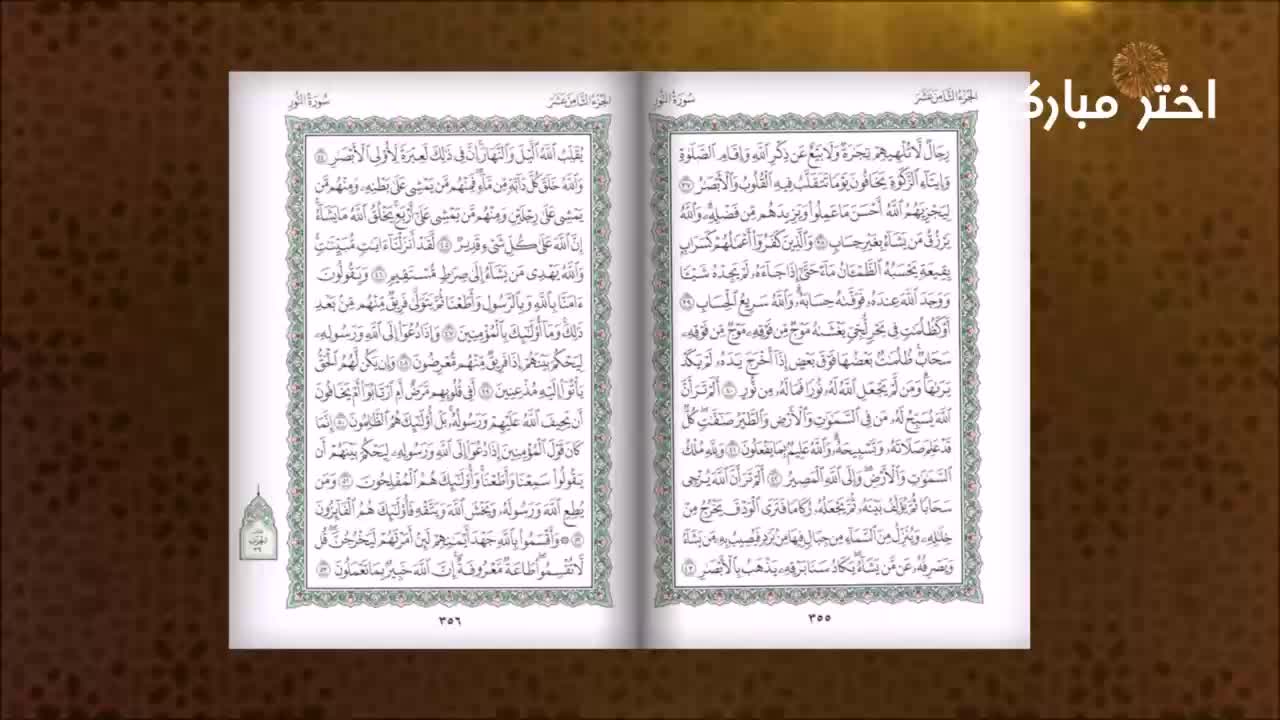 اختر مبارك
الجزء الثامن عشر
سورة النور
رجال لا تلهيهم تجرة ولا بيع عن ذكر الله وإقام الصلوة
وإيتاء الزكوة يخافون يوما تتقلب فيه القلوب والأبصر ٣٧
ليجزيهم الله أحسن ما عملوا ويزيدهم من فضله والله
يرزق من يشاء بغير حساب ٣٨ والذين كفروا أعملهم كسراب
بقيعة يحسبه الظمـان ماء حتى إذا جاءه لم يجده شيـا
ووجد الله عنده فوفىه حسابه والله سريع الحساب ٣٩
أو كظلمت في بحر لجي يغشىه موج من فوقه موج من فوقه
سحاب ظلمت بعضها فوق بعض إذا أخرج يده لم يكد
يرىها ومن لم يجعل الله له نورا فما له من نور ٤٠ ألم تر أن
الله يسبح له من في السموت والأرض والطير صفت كل
قد علم صلاته وتسبيحه والله عليم بما يفعلون ٤١ ولله ملك
السموت والأرض وإلى الله المصير ٤٢ ألم تر أن الله يزجي
سحابا ثم يؤلف بينه ثم يجعله ركاما فترى الودق يخرج من
خلله وينزل من السماء من جبال فيها من برد فيصيب به من يشاء
ويصرفه عن من يشاء يكاد سنا برقه يذهب بالأبصر ٤٣
٣٥٥
الجزء الثامن عشر
سورة النور
يقلب الله اليل والنهار إن في ذلك لعبرة لأولي الأبصر ٤٤
والله خلق كل دابة من ماء فمنهم من يمشي على بطنه ومنهم من
يمشي على رجلين ومنهم من يمشي على أربع يخلق الله ما يشاء
إن الله على كل شيء قدير ٤٥ لقد أنزلنا ءايت مبينت
والله يهدي من يشاء إلى صرط مستقيم ٤٦ ويقولون
ءامنا بالله وبالرسول وأطعنا ثم يتولى فريق منهم من بعد
ذلك وما أولئك بالمؤمنين ٤٧ وإذا دعوا إلى الله ورسوله
ليحكم بينهم إذا فريق منهم معرضون ٤٨ وإن يكن لهم الحق
يأتوا إليه مذعنين ٤٩ أفي قلوبهم مرض أم ارتابوا أم يخافون
أن يحيف الله عليهم ورسوله بل أولئك هم الظلمون ٥٠ إنما
كان قول المؤمنين إذا دعوا إلى الله ورسوله ليحكم بينهم أن
يقولوا سمعنا وأطعنا وأولئك هم المفلحون ٥١ ومن
يطع الله ورسوله ويخش الله ويتقه فأولئك هم الفائزون
٥٢ ۞ وأقسموا بالله جهد أيمنهم لئن أمرتهم ليخرجن قل
لا تقسموا طاعة معروفة إن الله خبير بما تعملون ٥٣
٣٥٦